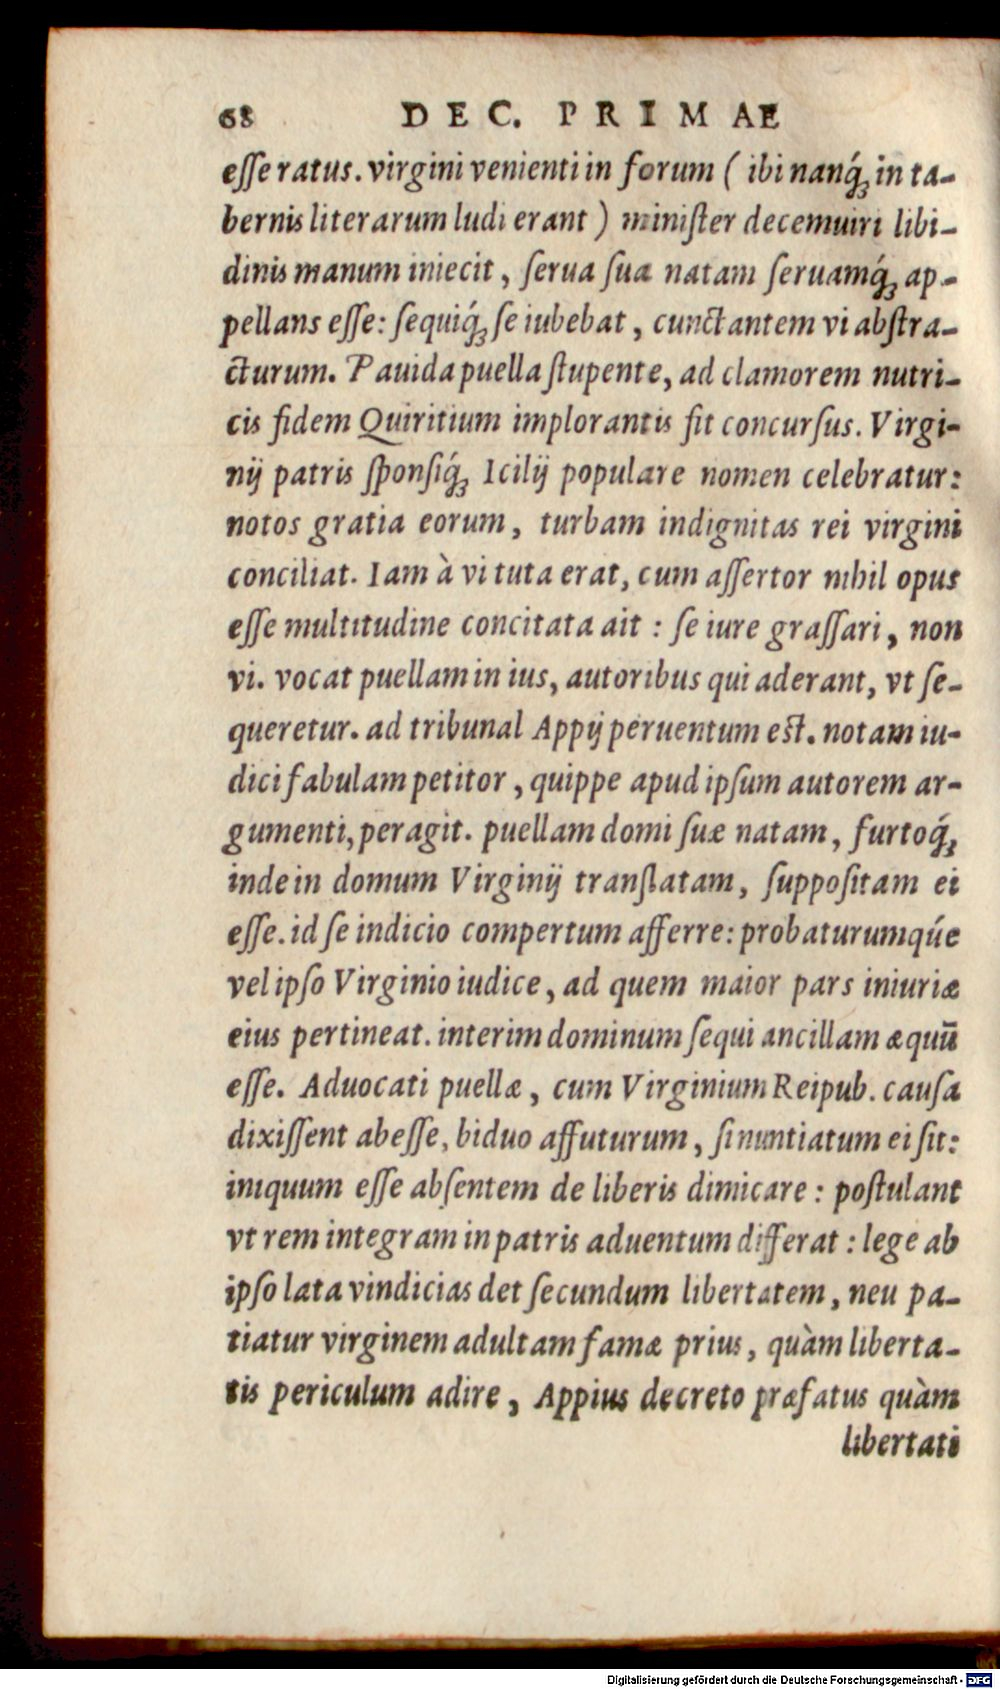 68 DEC. PRIMAE
eſſe ratus. virgini venienti in forum ( ibi nanq́ꝫ in ta-
bernis literarum ludi erant ) miniſter decemuiri libi-
dinis manum iniecit, ſerua ſua natam ſeruamq́ꝫ ap-
pellans eſſe: ſequiq́ꝫ ſe iubebat, cunctantem vi abſtra-
cturum. Pauida puella ſtupente, ad clamorem nutri-
cis fidem Quiritium implorantis fit concurſus. Virgi-
nij patris ſponſiq́ꝫ Icilij populare nomen celebratur:
notos gratia eorum, turbam indignitas rei virgini
conciliat. Iam à vi tuta erat, cum aſſertor nihil opus
eſſe multitudine concitata ait : ſe iure graſſari, non
vi. vocat puellam in ius, autoribus qui aderant, vt ſe-
queretur. ad tribunal Appij peruentum eſt. notam iu-
dici fabulam petitor, quippe apud ipſum autorem ar-
gumenti, peragit. puellam domi ſuæ natam, furtoq́ꝫ
inde in domum Virginij tranſlatam, ſuppoſitam ei
eſſe. id ſe indicio compertum afferre: probaturumq́ue
vel ipſo Virginio iudice, ad quem maior pars iniuriæ
eius pertineat. interim dominum ſequi ancillam æquū
eſſe. Aduocati puellæ, cum Virginium Reipub. cauſa
dixiſſent abeſſe, biduo affuturum, ſi nuntiatum ei ſit:
iniquum eſſe abſentem de liberis dimicare : poſtulant
vt rem integram in patris aduentum differat : lege ab
ipſo lata vindicias det ſecundum libertatem, neu pa-
tiatur virginem adultam famæ prius, quàm liberta-
tis periculum adire, Appius decreto præfatus quàm
libertati
Digitalisierung gefördert durch die Deutsche Forschungsgemeinschaft - DFG